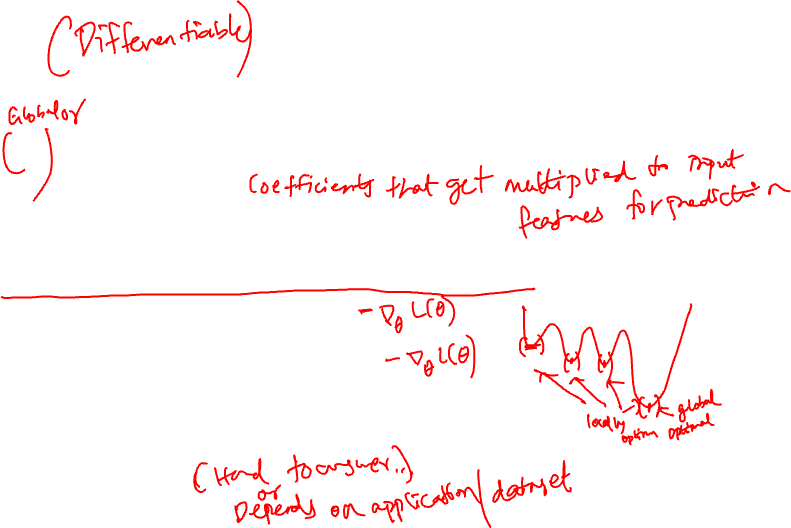 (Differentiable)
Global or
( )
Coefficients that get multiplied to input
features for prediction
- ∇θ L(θ)
- ∇θ L(θ)
global
locally
optimal
optimum
(Hard to answer..)
or
Depends on application/dataset